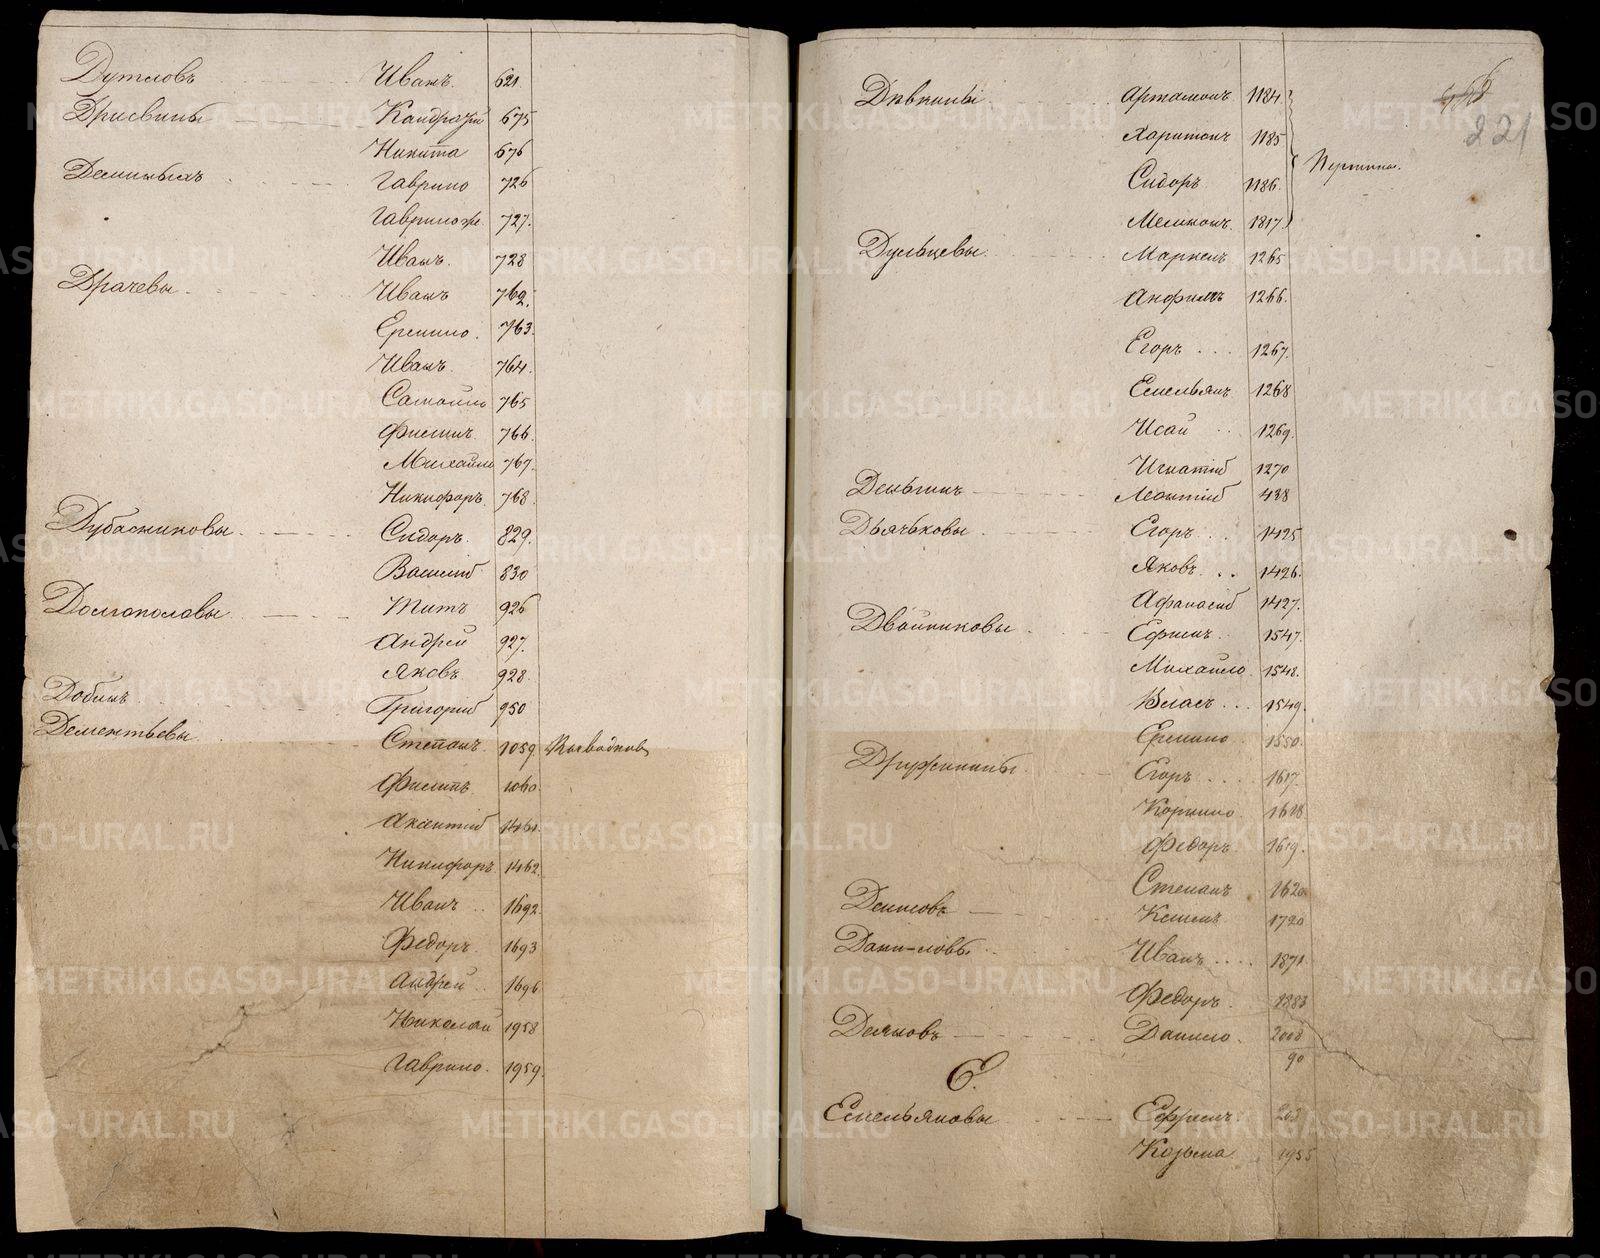 Дутловъ Иванъ 621
Дрисвины Кандратій 675
Никита 676
Деминыхъ Гаврило 726
Гаврило же 727.
Иванъ 728
Драчевы Иванъ 762.
Еремило. 763.
Иванъ 764.
Самойло 765
Филипъ 766.
Михайло 767.
Никифоръ 768.
Дубасниковы Сидоръ 829.
Василій 830
Долгополовы Титъ 926
Андрей 927.
Яковъ 928.
Добинъ Григорій 950
Дементьевы Степанъ 1059
Филипъ 1060.
Аксентій 1461.
Никифоръ 1462.
Иванъ 1692.
Федоръ 1693
Андрей 1696
Николай 1958
Гаврило. 1959.
221
Дѣвкины Артамонъ 1184
Харитонъ 1185
Сидоръ 1186.
Меликонъ. 1817.
Дульцевы. Маркелъ 1265
Анфимъ 1266.
Егоръ 1267.
Емельянъ 1268
Исай 1269.
Игнатій 1270
Деньгинъ Леонтій 438
Дьячьковы Егоръ 1425
Яковъ 1426.
Афанасій 1427.
Двойниковы Ефимъ 1547.
Михайло 1548.
Власъ 1549.
1550.
Дружинины Егоръ 1617.
Корнило. 1618
Федоръ 1619.
Степанъ 1620
Денисовъ 1720
Дани-ловы Иванъ 1871.
Федоръ. 1883
Деяновъ Данило. 2008
90
Е.
Емельяновы Ефремъ. 203
Козьма 1955